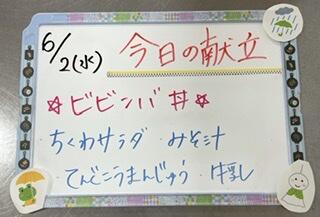 6/2(水) 今日の献立
☆ビビンバ丼☆
・ちくわサラダ ・みそ汁
・てんどこうまんじゅう ・牛乳